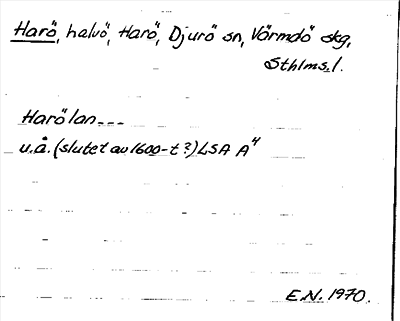 Harö, halvö, Harö, Djurö sn, Värmdö skg,
Sthlms l.
Harö lan---
u.å. (slutet av 1600-t?) LSA A4
E.N. 1970.